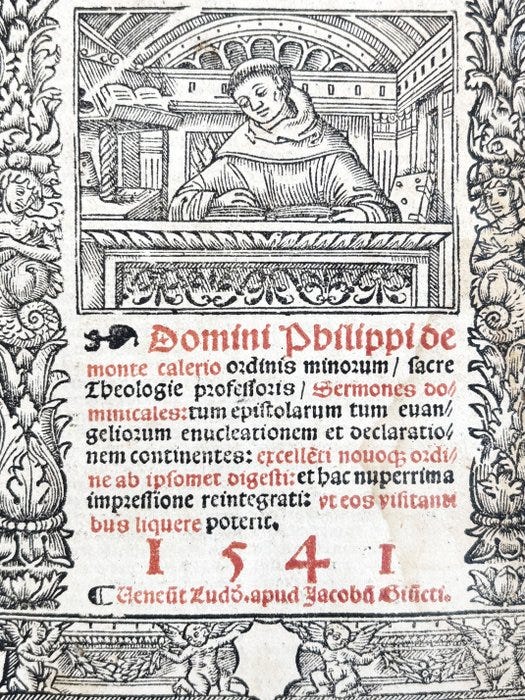 Domini Philippi de
monte calerio ordinis minorum / sacre
Theologie professoris / Sermones do/
minicales: tum epistolarum tum euan/
geliorum enucleationem et declaratio/
nem continentes: excellẽti nouoqꝫ ordi/
ne ab ipsomet digesti: et hac nuperrima
impressione reintegrati: vt eos visitanti
bus liquere poterit.
1541
Veneũt Ludõ. apud Jacobũ Giũcti.